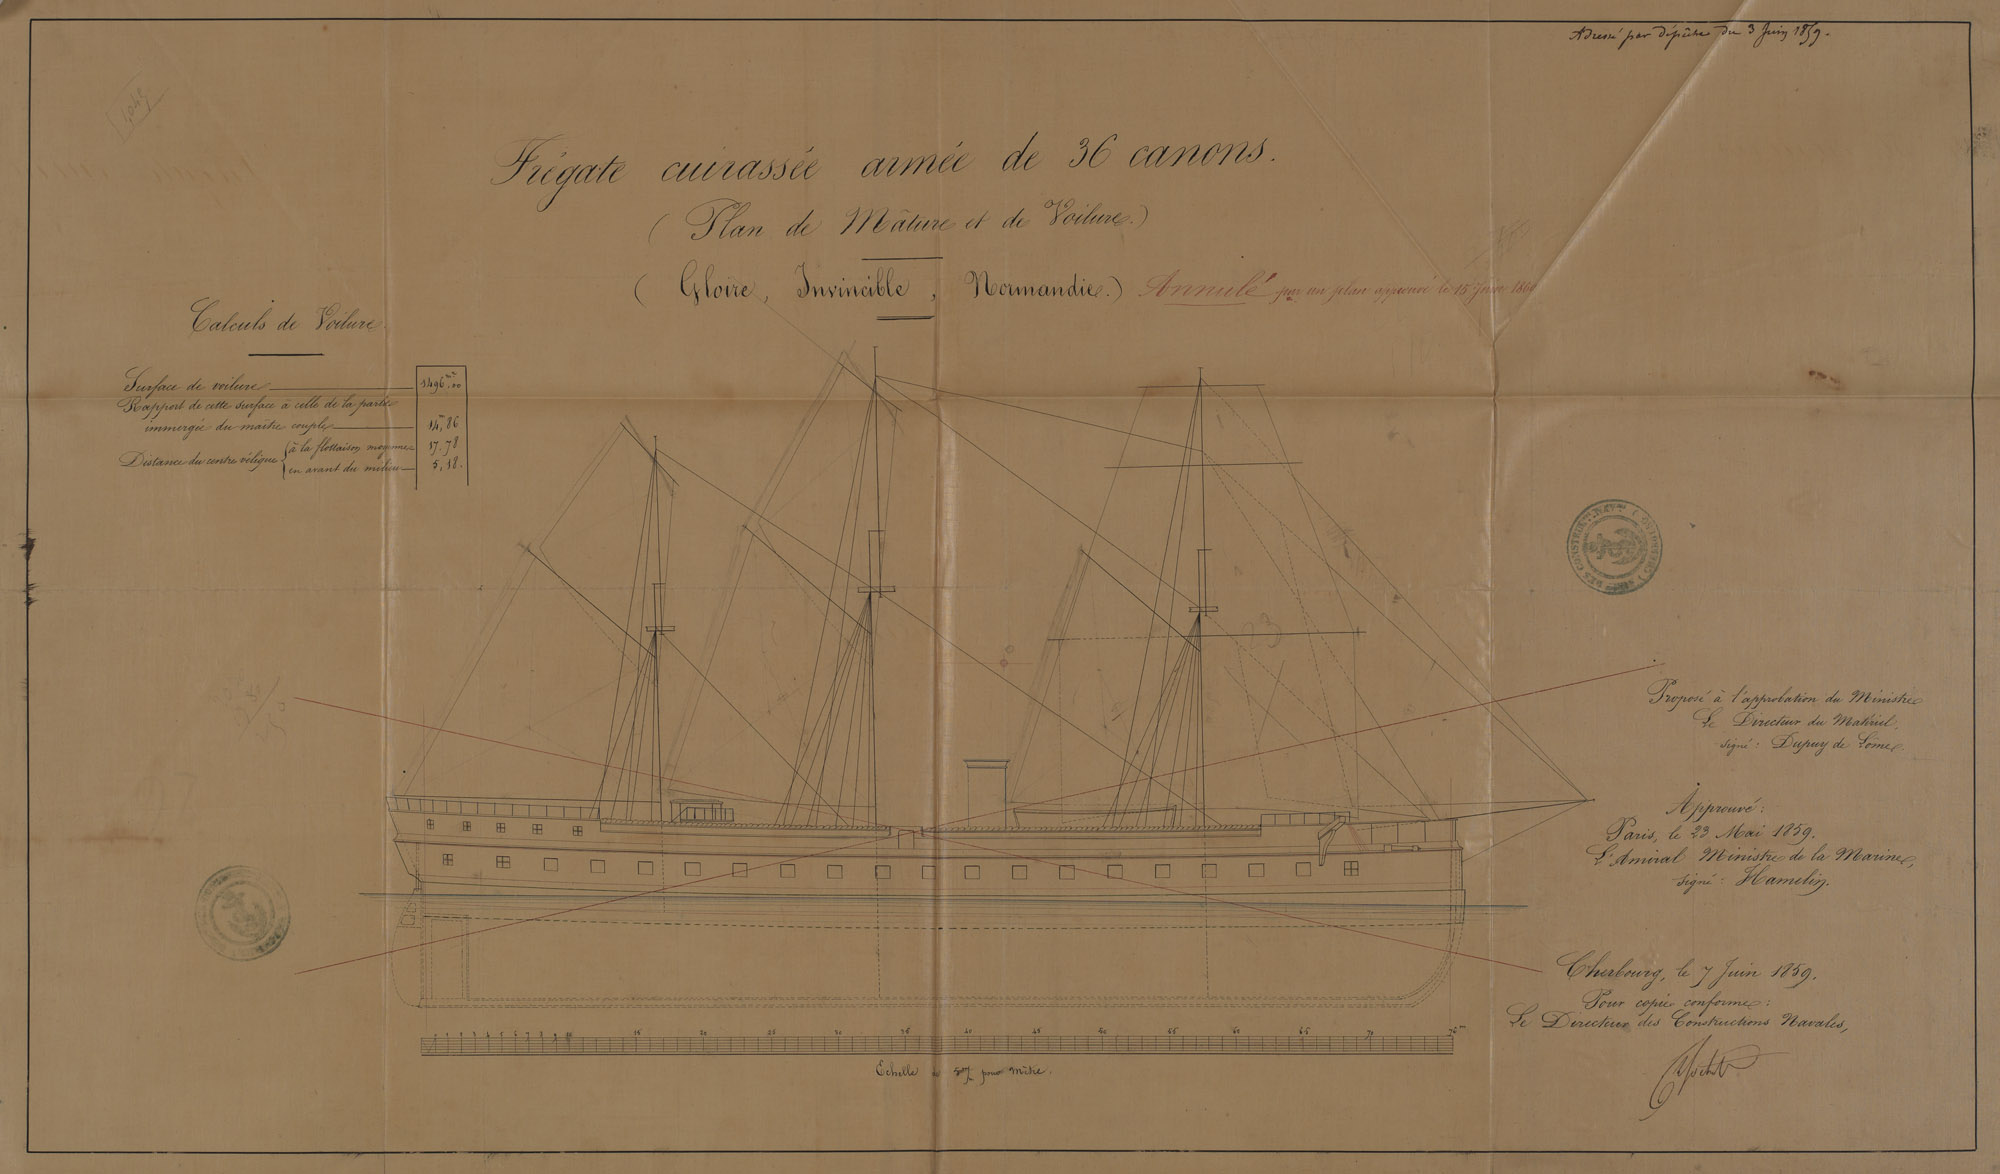 Adressé par dépêche du 3 Juin 1859.
Frégate cuirassée armée de 36 canons.
( Plan de Mâture et de Voilure. )
( Gloire, Invincible, Normandie. ) Annulé par un plan approuvé le 15 Juin 1860
Calculs de Voilure.
Surface de voilure 1496
Rapport de cette surface à celle de la partie
immergée du maitre couple 14,86
Distance du centre vélique { à la flottaison moyenne 17.78
en avant du milieu 5,18.
23
Proposé à l'approbation du Ministre
Le Directeur du Matériel
signé : Dupuy de Lôme.
Approuvé :
Paris, le 23 Mai 1859.
L'Amiral Ministre de la Marine,
signé : Hamelin.
Cherbourg, le 7 Juin 1859.
Pour copie conforme :
Le Directeur des Constructions Navales,
1 2 3 4 5 6 7 8 9 10 15 20 25 30 35 40 45 50 55 60 65 70 76
Echelle de 5 pour Mètre.